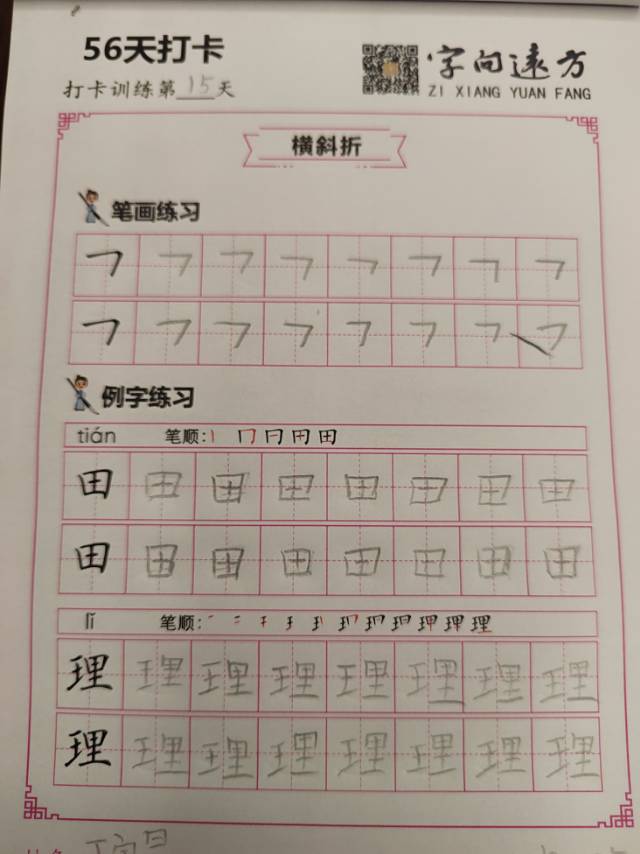 56天打卡
打卡训练第15天
字向遠方
ZI XIANG YUAN FANG
横斜折
笔画练习
例字练习
tián 笔顺:
田 田 田 田 田 田 田 田
田 田 田 田 田 田 田 田
lǐ 笔顺:
理 理 理 理 理 理 理 理
理 理 理 理 理 理 理 理